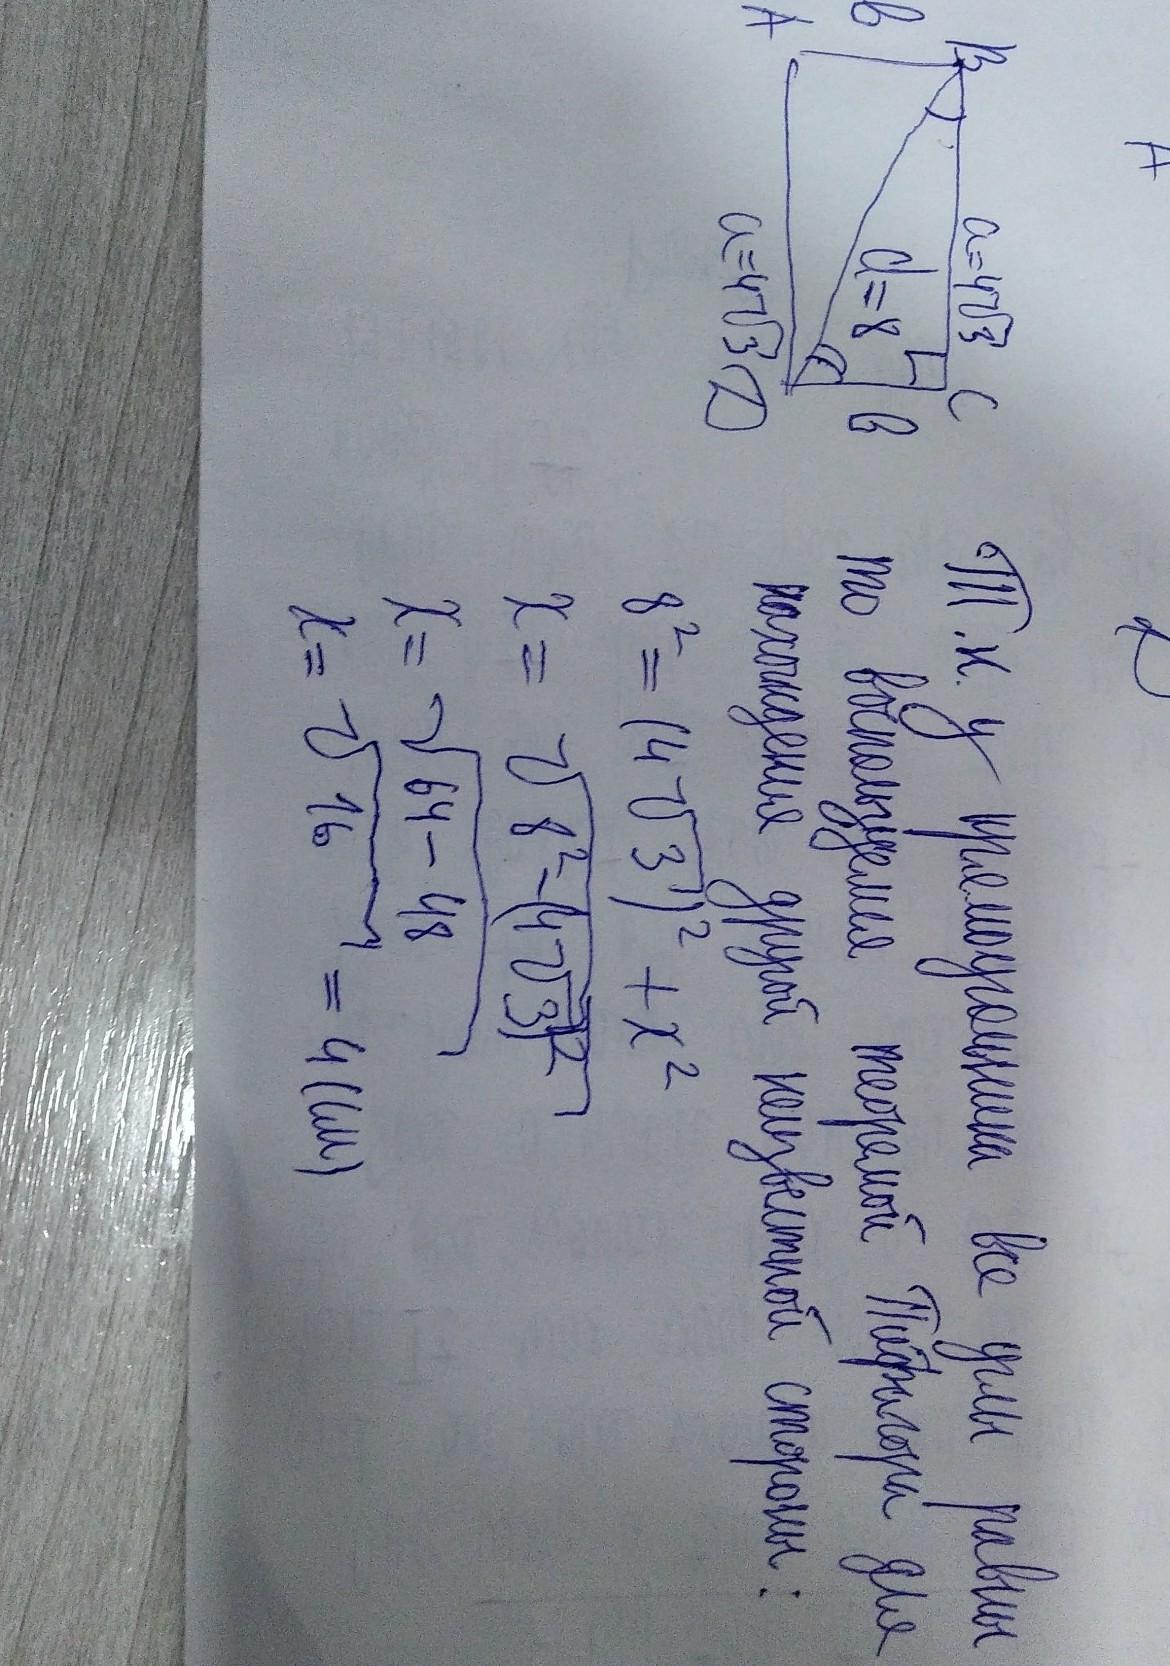 A
B
a=4√3
C
в
d=8
в
A
a=4√3
D
Т.к. у прямоугольника все углы равны
то воспользуемся теоремой Пифагора для
нахождения другой неизвестной стороны:
8² = (4√3)² + x²
x = √8²-(4√3)²
x = √64-48
x = √16 = 4 (см)